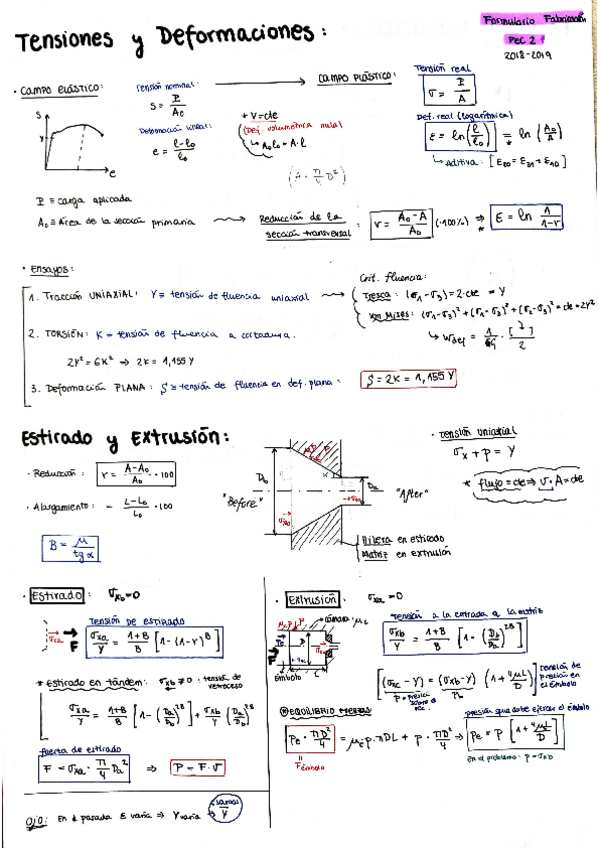 Formulario Fabricación
PEC 2
2018-2019
Tensiones y Deformaciones:
· CAMPO ELÁSTICO:
Tensión nominal:
S = P/A₀
Deformación lineal:
e = (l-l₀)/l₀
* V=cte
(Def. volumétrica nula)
↳ A₀l₀ = A·l
(A · π/4 D²)
CAMPO PLÁSTICO:
Tensión real
σ = P/A
Def. real (logarítmica)
ε = ln(l/l₀) = ln(A₀/A)
*
↳ Aditiva:
S
Y
e
P ≡ carga aplicada
A₀ ≡ Área de la sección primaria
Reducción de la sección transversal:
r = (A₀-A)/A₀ (·100%) ⇒ ε = ln 1/(1-r)
*
· Ensayos:
1. Tracción UNIAXIAL: Y ≡ tensión de fluencia uniaxial
Crit. fluencia:
Tresca: (σ₁-σ₃) = 2·cte = Y
Von Mises: (σ₁-σ₂)² + (σ₂-σ₃)² + (σ₁-σ₃)² = cte = 2Y²
2. TORSIÓN: K = tensión de fluencia a cortadura.
2Y² = 6K² ⇒ 2K = 1,155 Y
3. Deformación PLANA: S ≡ tensión de fluencia en def. plana:
S = 2K = 1,155 Y
Estirado y Extrusión:
· Reducción: r = (A-A₀)/A₀ · 100
· Alargamiento: (L-L₀)/L₀ · 100
B = μ/tg α
"Before"
"After"
D_b
D_a
Hilera en estirado
Matriz en extrusión
· Tensión uniaxial
σx + p = Y
* flujo = cte ⇒ v·A = cte
· Estirado: σxb = 0
Tensión de estirado
σxa/Y = (1+B)/B [1-(1-r)^B]
F
* Estirado en tándem: σxb ≠ 0 : tensión de retroceso
σxa/Y = (1+B)/B [1-(Da/Db)^2B] + σxb/Y (Da/Db)^2B
Fuerza de estirado
F = σxa · π/4 Da² ⇒ P = F·v
Ojo: En d pasada ε varía → Y varía →
Y
· Extrusión: σxa = 0
cámara μc
Émbolo
Tensión a la entrada a la matriz
σxb/Y = (1+B)/B [1-(Db/Da)^2B]
(σxc - Y) = (σxb - Y) (1 + 4μL/D)
Tensión de presión en el émbolo
EQUILIBRIO FUERZAS
Pe · πD²/4 = μc p·πDL + p·πD²/4 ⇒ Pe = P [1 + 4μL/D]
F émbolo
presión que debe ejercer el émbolo
en el problema: p = σxb